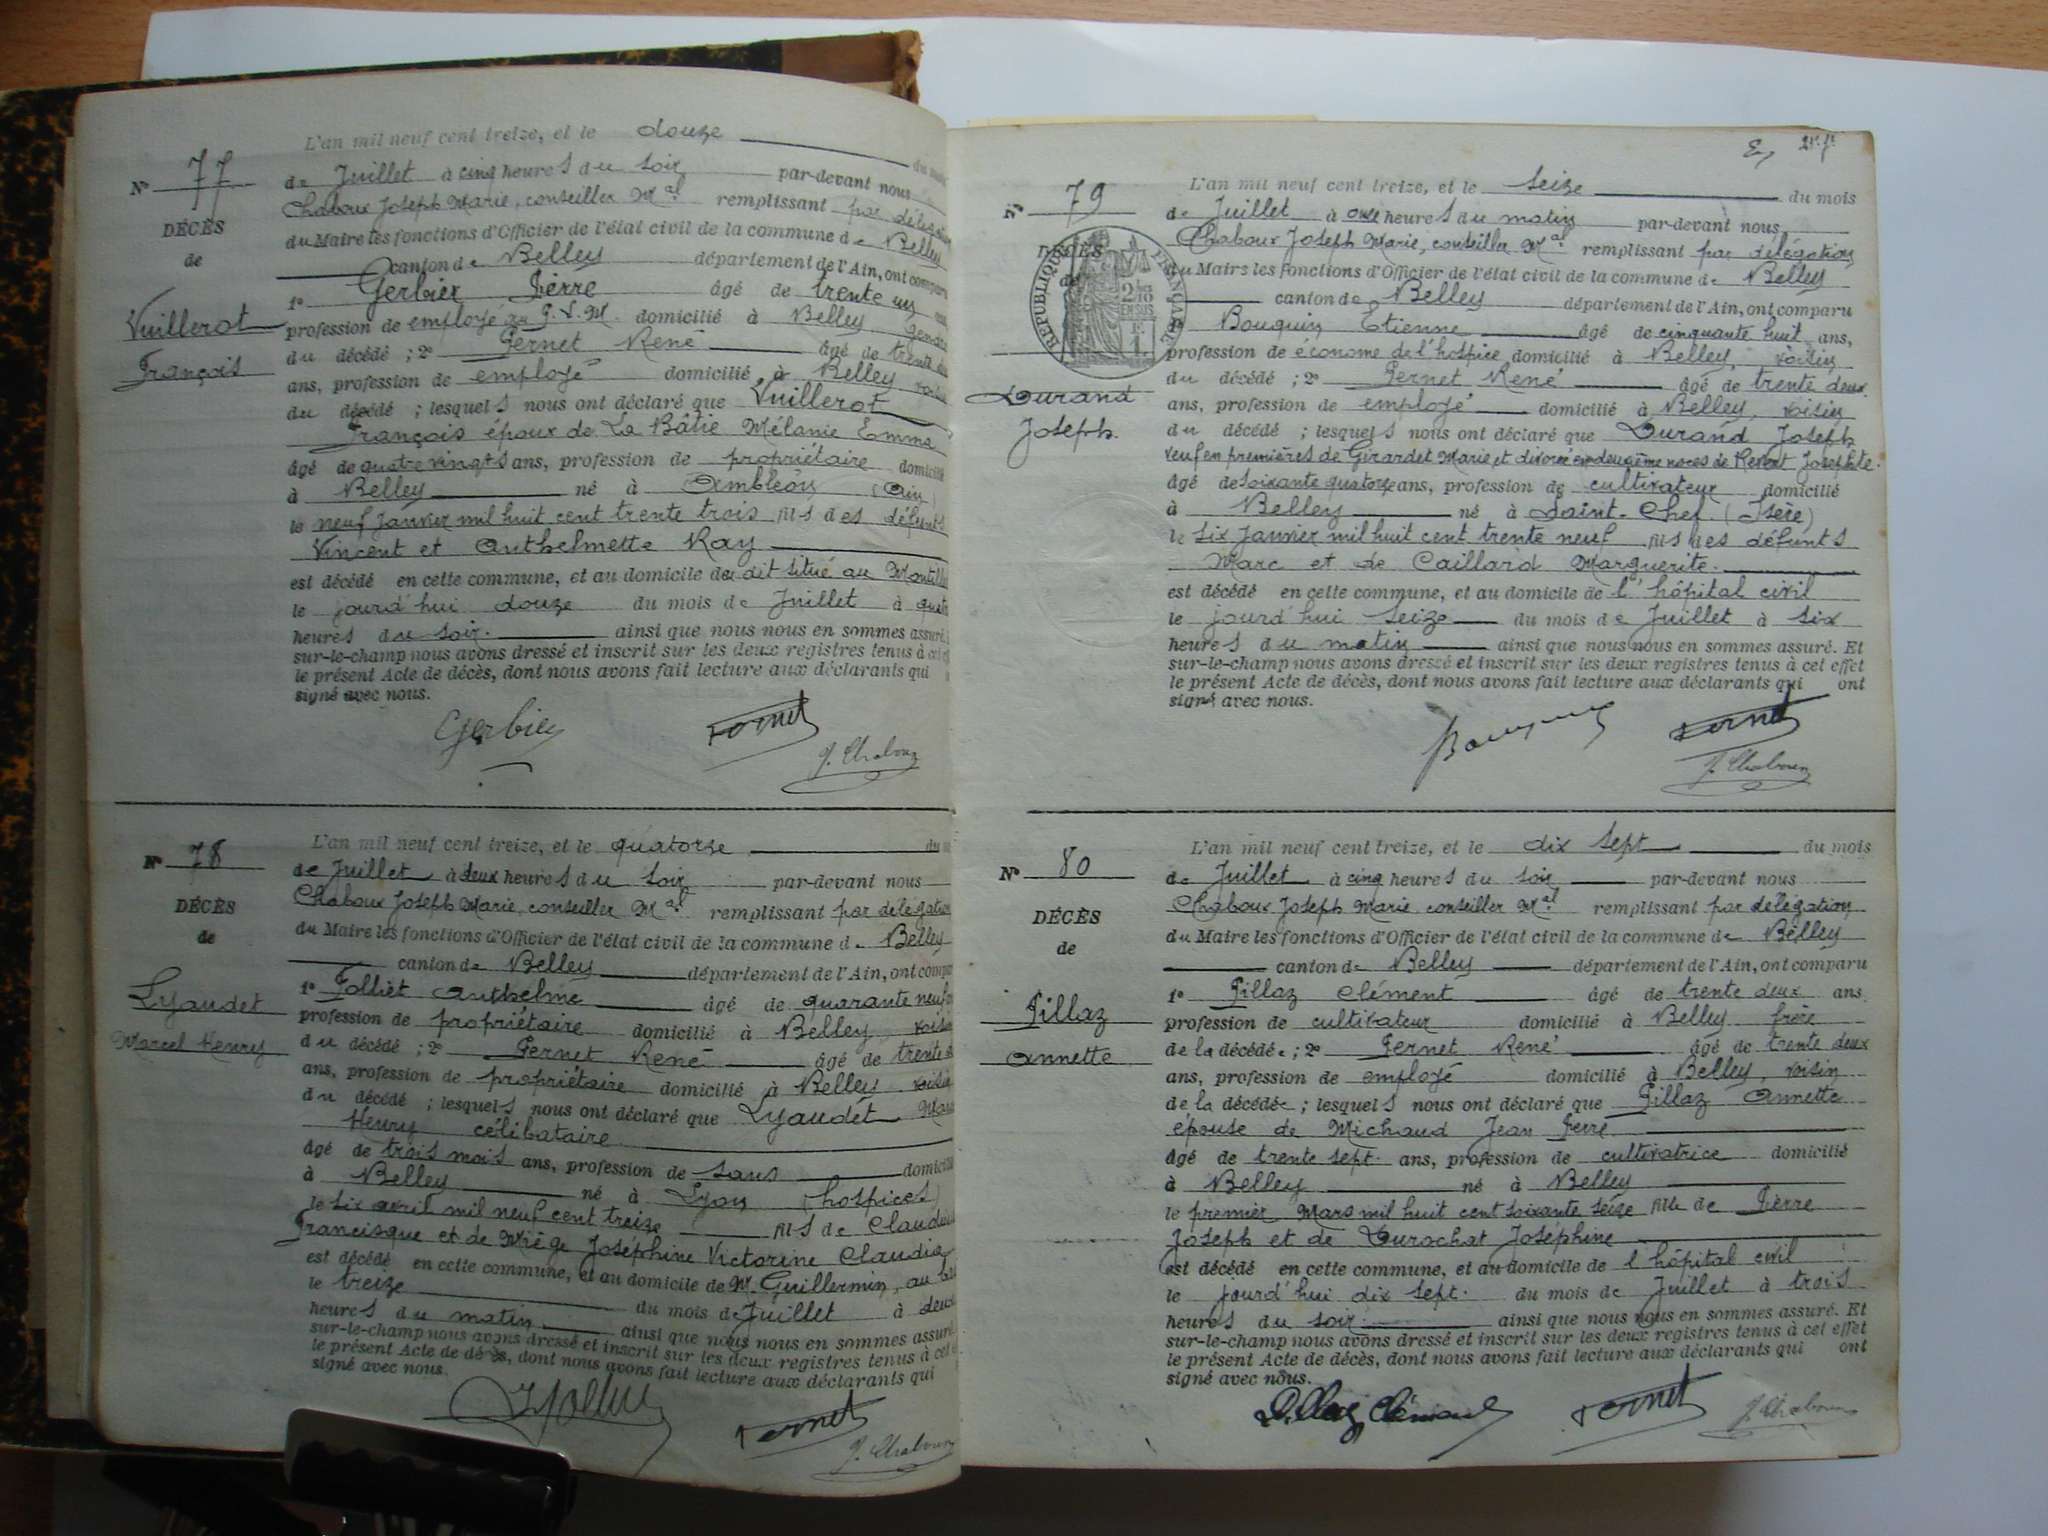 L'an mil neuf cent treize, et le douze du mois
N° 77
de Juillet à cinq heures du soir par-devant nous
Chaboux Joseph Marie, conseiller Mal remplissant par délégation
DÉCÈS
du Maire les fonctions d'Officier de l'état civil de la commune de Belley
de
canton de Belley département de l'Ain, ont comparu
1° Gerbier Pierre âgé de trente un ans,
Vuillerot
profession de employé au P.L.M. domicilié à Belley gendre
François
du décédé ; 2° Pernet René âgé de trente deux
ans, profession de employé domicilié à Belley voisin
du décédé ; lesquels nous ont déclaré que Vuillerot
François époux de La Bâtie Mélanie Emma
âgé de quatre vingts ans, profession de propriétaire domicilié
à Belley né à Ambléon (Ain)
le neuf Janvier mil huit cent trente trois fils des défunts
Vincent et Anthelmette Ray
est décédé en cette commune, et au domicile du dit situé au Montillet
le jourd'hui douze du mois de Juillet à quatre
heures du soir. ainsi que nous nous en sommes assuré.
sur-le-champ nous avons dressé et inscrit sur les deux registres tenus à cet
le présent Acte de décès, dont nous avons fait lecture aux déclarants qui
signé avec nous.
Gerbier Pernet
J. Chaboux
L'an mil neuf cent treize, et le quatorze du
N° 78
de Juillet à deux heures du soir par-devant nous
Chaboux Joseph Marie, conseiller Mal remplissant par délégation
DÉCÈS
du Maire les fonctions d'Officier de l'état civil de la commune de Belley
de
canton de Belley département de l'Ain, ont comparu
Lyaudet
1° Folliet Anthelme âgé de quarante neuf
profession de propriétaire domicilié à Belley voisin
Marcel Henry
du décédé ; 2° Pernet René âgé de trente
ans, profession de propriétaire domicilié à Belley voisin
du décédé ; lesquels nous ont déclaré que Lyaudet Marcel
Henry célibataire
âgé de trois mois ans, profession de sans domicilié
à Belley né à Lyon (hospices)
le six avril mil neuf cent treize fils de Claudius
Francisque et de Miège Joséphine Victorine Claudia
est décédé en cette commune, et au domicile de Mr. Guillermin, au
le treize du mois de Juillet à deux
heures du matin ainsi que nous nous en sommes assuré.
sur-le-champ nous avons dressé et inscrit sur les deux registres tenus à cet
le présent Acte de décès, dont nous avons fait lecture aux déclarants qui
signé avec nous.
Folliet Pernet
J. Chaboux
L'an mil neuf cent treize, et le seize du mois
N° 79
de Juillet à onze heures du matin par-devant nous
Chaboux Joseph Marie, conseiller Mal remplissant par délégation
DÉCÈS
du Maire les fonctions d'Officier de l'état civil de la commune de Belley
de
RÉPUBLIQUE FRANÇAISE
canton de Belley département de l'Ain, ont comparu
Bouquin Etienne âgé de cinquante huit ans,
profession de économe de l'hospice domicilié à Belley, voisin
du décédé ; 2° Pernet René âgé de trente deux
Durand
ans, profession de employé domicilié à Belley, voisin
Joseph.
du décédé ; lesquels nous ont déclaré que Durand Joseph
veuf en premières de Girardet Marie et divorcé en deuxième noces de Revert Josephte
âgé de soixante quatorze ans, profession de cultivateur domicilié
à Belley né à Saint-Chef. (Isère)
le six Janvier mil huit cent trente neuf fils des défunts
Marc et de Caillard Marguerite.
est décédé en cette commune, et au domicile de l'hôpital civil
le jourd'hui seize du mois de Juillet à six
heures du matin ainsi que nous nous en sommes assuré. Et
sur-le-champ nous avons dressé et inscrit sur les deux registres tenus à cet effet
le présent Acte de décès, dont nous avons fait lecture aux déclarants qui ont
signé avec nous.
Bouquin Pernet
J. Chaboux
L'an mil neuf cent treize, et le dix sept du mois
N° 80
de Juillet à cinq heures du soir par-devant nous
Chaboux Joseph Marie, conseiller Mal remplissant par délégation
DÉCÈS
du Maire les fonctions d'Officier de l'état civil de la commune de Belley
de
canton de Belley département de l'Ain, ont comparu
Pillaz
1° Pillaz Clément âgé de trente deux ans
profession de cultivateur domicilié à Belley frère
Annette
de la décédée ; 2° Pernet René âgé de trente deux
ans, profession de employé domicilié à Belley, voisin
de la décédée ; lesquels nous ont déclaré que Pillaz Annette
épouse de Michaud Jean Pierre
âgé de trente sept. ans, profession de cultivatrice domicilié
à Belley né à Belley
le premier Mars mil huit cent soixante seize fille de Pierre
Joseph et de Durochat Joséphine
est décédé en cette commune, et au domicile de l'hôpital civil
le jourd'hui dix sept. du mois de Juillet à trois
heures du soir. ainsi que nous nous en sommes assuré. Et
sur-le-champ nous avons dressé et inscrit sur les deux registres tenus à cet effet
le présent Acte de décès, dont nous avons fait lecture aux déclarants qui ont
signé avec nous.
Pillaz Clément Pernet J. Chaboux